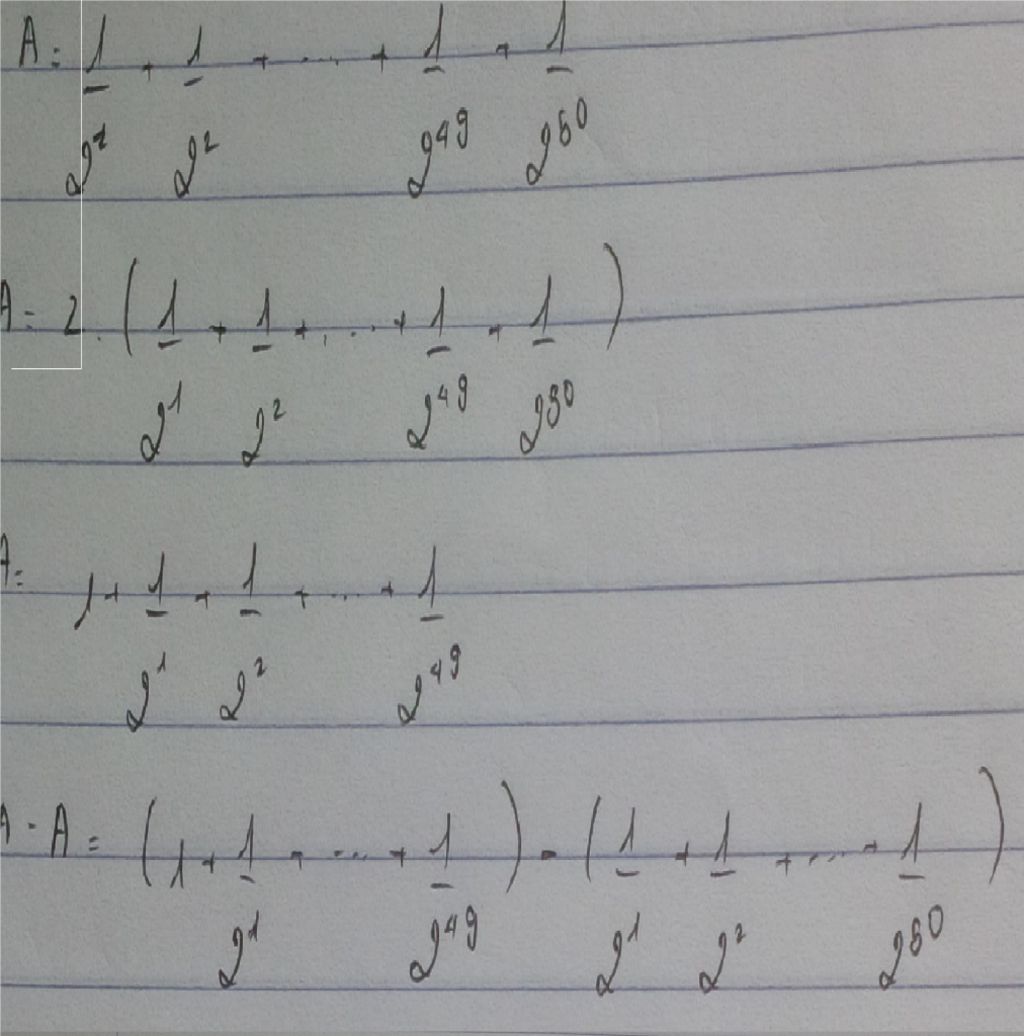 A = 1/2^1 + 1/2^2 + .... + 1/2^49 + 1/2^50
A = 2 . ( 1/2^1 + 1/2^2 + .... + 1/2^49 + 1/2^50 )
A = 1 + 1/2^1 + 1/2^2 + .... + 1/2^49
A - A = ( 1 + 1/2^1 + .... + 1/2^49 ) - ( 1/2^1 + 1/2^2 + .... + 1/2^50 )